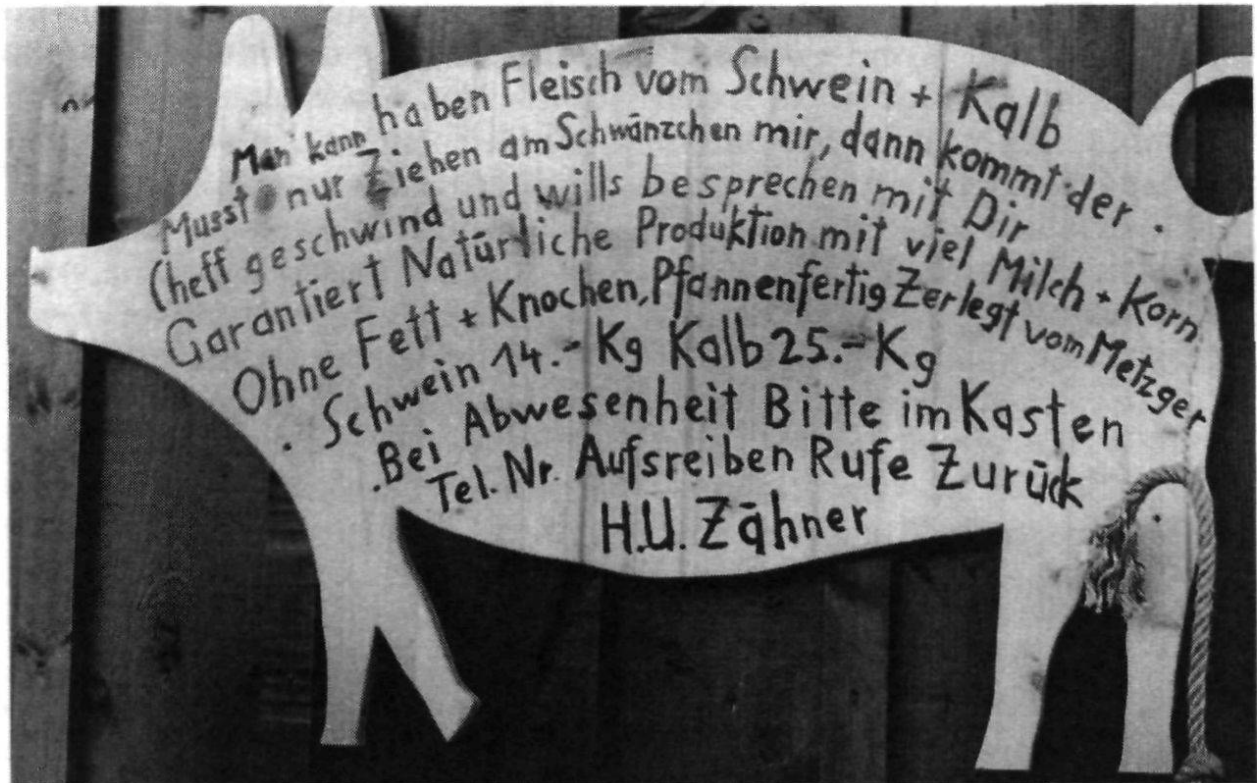 Man kann haben Fleisch vom Schwein + Kalb
Musst nur Ziehen am Schwänzchen mir, dann kommt der
Cheff geschwind und wills besprechen mit Dir
Garantiert Natürliche Produktion mit viel Milch + Korn
Ohne Fett + Knochen, Pfannenfertig Zerlegt vom Metzger
. Schwein 14.- Kg Kalb 25.- Kg
. Bei Abwesenheit Bitte im Kasten
Tel. Nr. Aufsreiben Rufe Zurück
H.U. Zähner